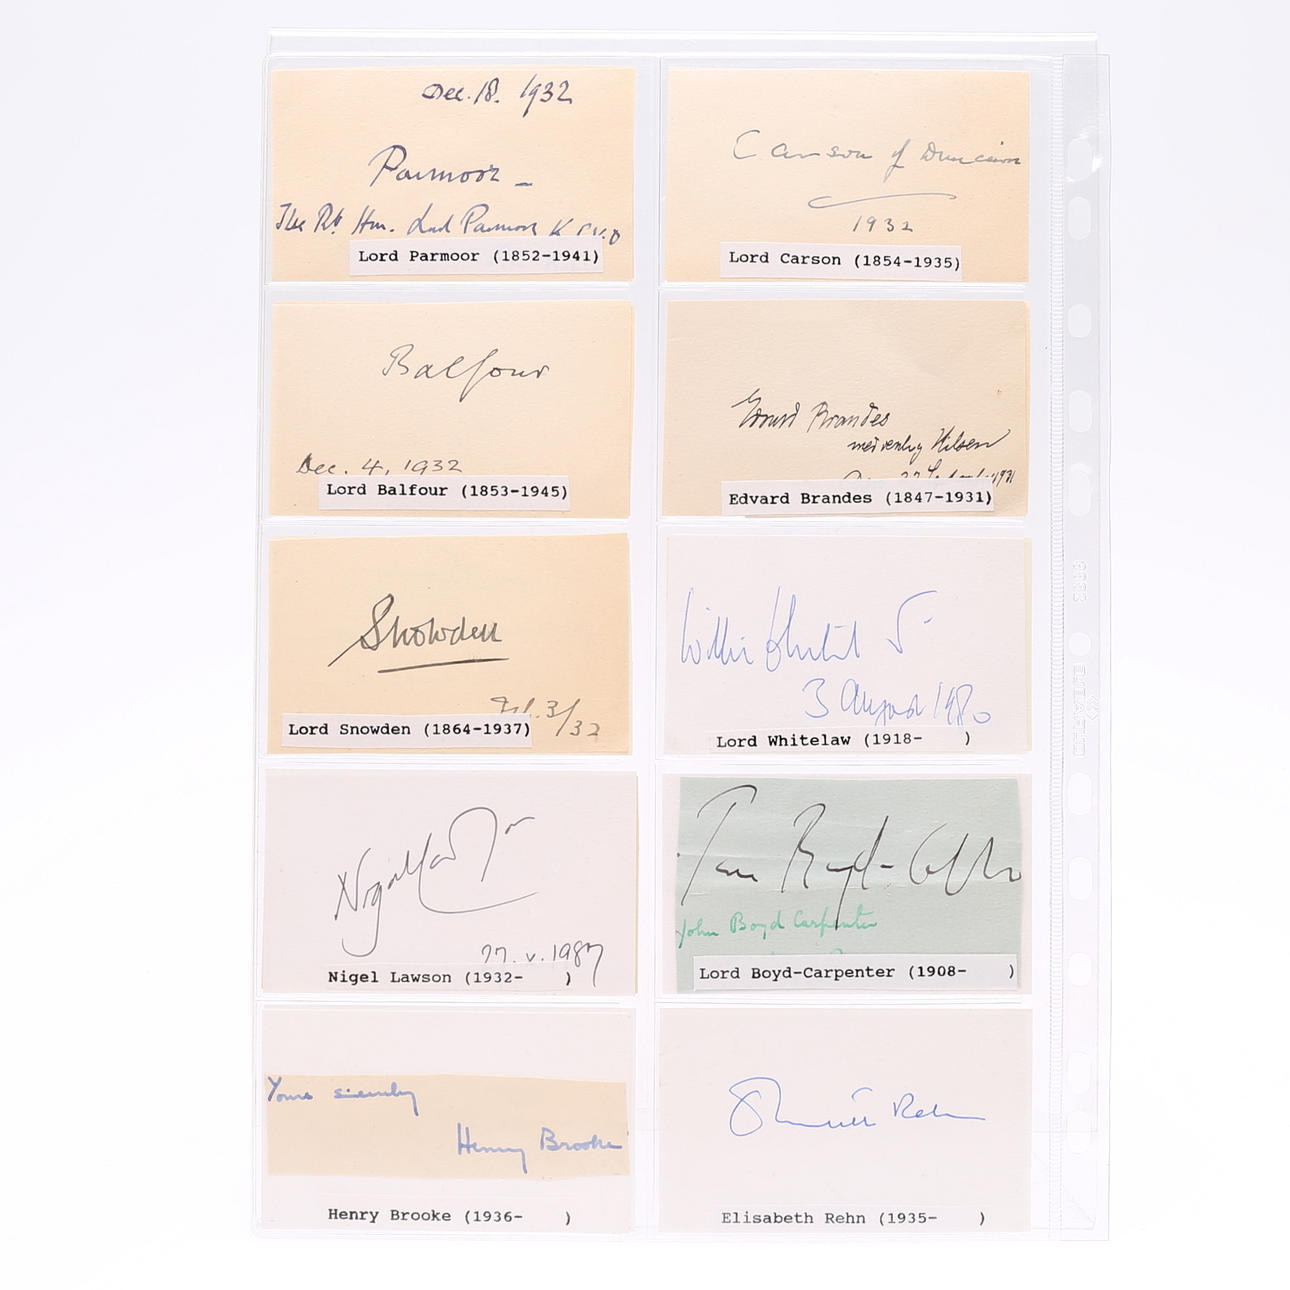 Dec. 18. 1932
Parmoor
The Rt. Hon. Lord Parmoor K.C.V.O
Lord Parmoor (1852-1941)
Carson of Duncairn
1932
Lord Carson (1854-1935)
Balfour
Dec. 4, 1932
Lord Balfour (1853-1945)
Edvard Brandes
med venlig Hilsen
1931
Edvard Brandes (1847-1931)
Snowden
3/32
Lord Snowden (1864-1937)
Willie Whitelaw
3 August 1980
Lord Whitelaw (1918- )
Nigel Lawson
27. v. 1987
Nigel Lawson (1932- )
Boyd-Carpenter
John Boyd Carpenter
Lord Boyd-Carpenter (1908- )
Yours sincerely
Henry Brooke
Henry Brooke (1936- )
Elisabeth Rehn
Elisabeth Rehn (1935- )